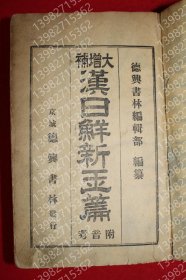 德興書林編輯部 編纂
增補
大
漢日鮮新玉篇
附音考
京城 德興書林 發行
13982712365
13982712365
13982712365